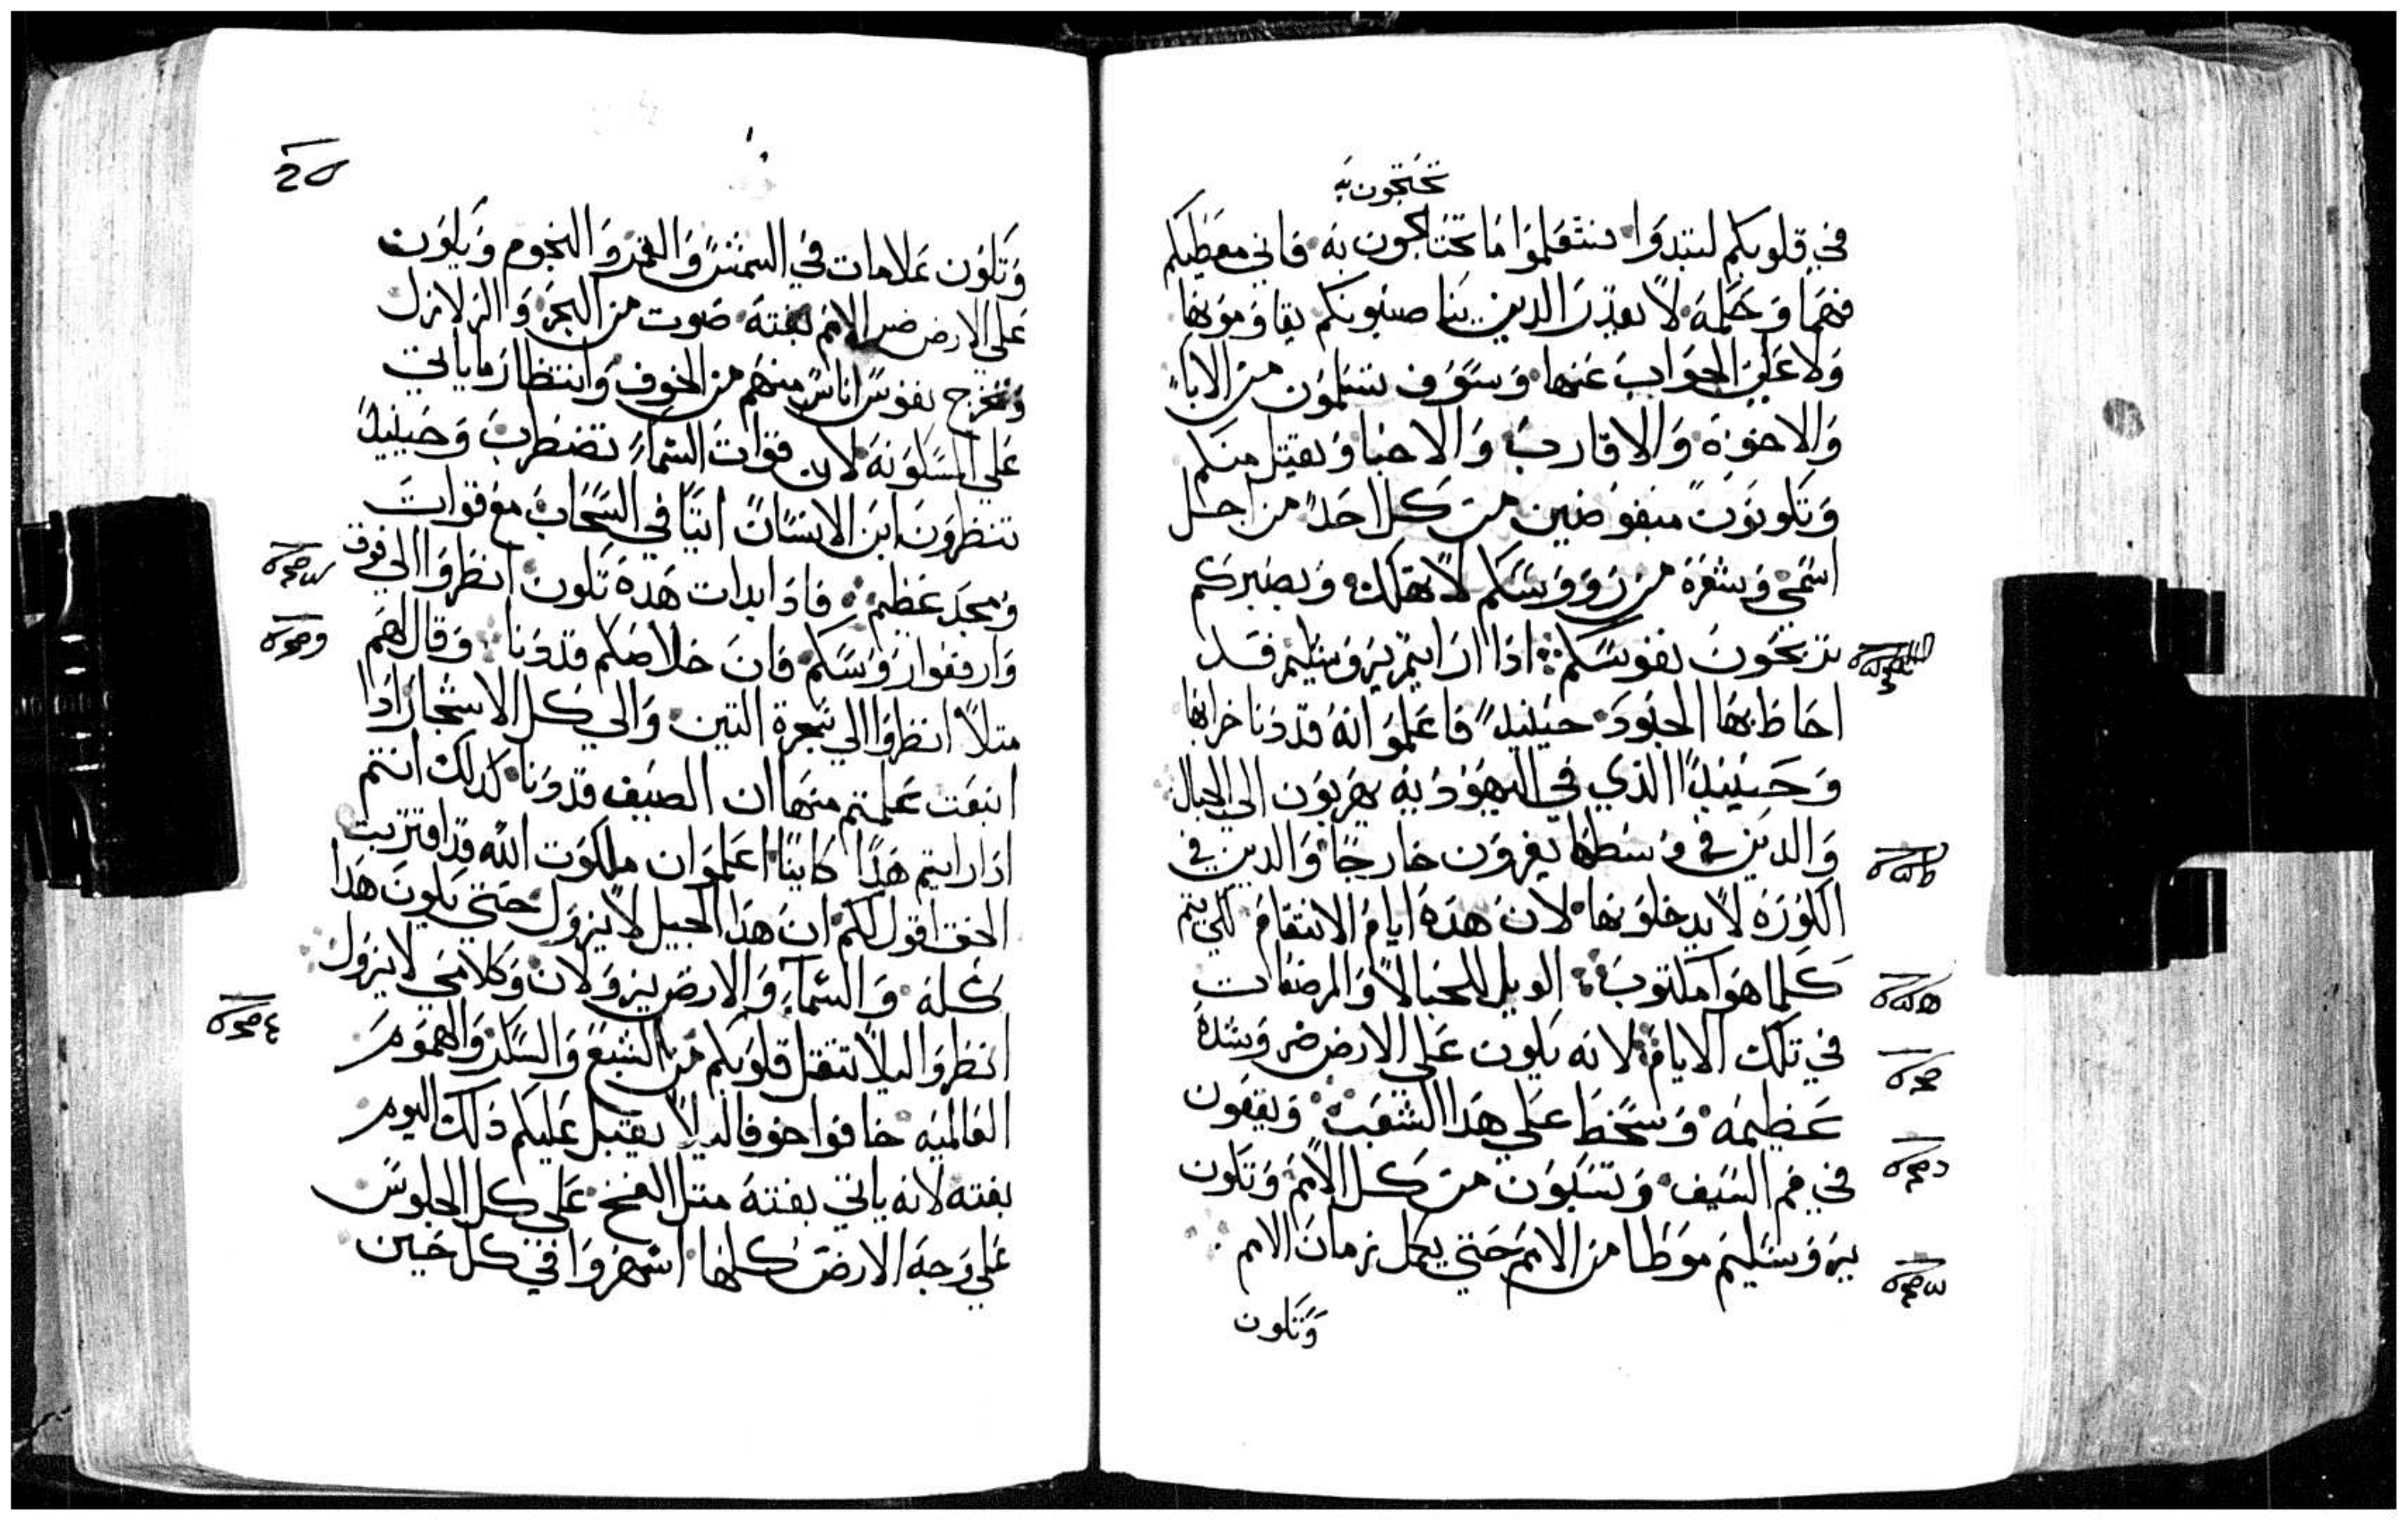 تحتجون به
في قلوبكم لتبدوا فتتعلموا ما تحتاجون به فاني معطيكم
فهما وحكمة لا يقدر الدين يناصبونكم يقاومونها
ولا علي الجواب عنها وسوف تسلمون من الاباء
والاخوة والاقارب والاحبا ويقتل منكم
وتكونون مبغوضين من كل احد من اجل
اسمي وشعرة من رووسكم لا تهلك وبصبركم
تربحون نفوسكم اذا ارايتم يروسليم قد
احاط بها الجنود حينيدٍ فاعلموا انه قد دنا خرابها
وحينيدٍ الذي في اليهودية يهربون الي الجبال
والدين في وسطها يفرون خارجا والدين في
الكورة لا يدخلونها لان هده ايام الانتقام لكي يتم
كلما هو مكتوب الويل للحبالا والمرضعات
في تلك الايام لانه يكون علي الارض ضر وشدة
عظيمة وسخط علي هدا الشعب ويقعون
في فم السيف وتسبون من كل الامم وتكون
يروسليم موطا من الامم حتي يكمل زمان الامم
وتكون
وتكون علامات في الشمس والقمر والنجوم ويكون
علي الارض ضر الامم بغتة صوت من البحر والزلازل
وتخرج نفوس اناس منهم من الخوف وانتظار ما ياتي
علي المسكونة لان قوات السماء تضطرب وحينيدٍ
تنظرون ابن الانسان اتيا في السحاب مع قوات
ومجد عظيم فادا بدات هده تكون انظروا الي فوق
وارفعوا رووسكم فان خلاصكم قد دنا وقال لهم
متلاً انظروا الي شجرة التين والي كل الاشجار ادا
اينعت علمتم منها ان الصيف قد دنا كدلك انتم
ادا رايتم هدا كاينا اعلموا ان ملكوت الله قد اقتربت
الحق اقول لكم ان هدا الجيل لا يزول حتي يكون هدا
كله والسماء والارض يزولان وكلامي لا يزول
انظروا ليلا تتقل قلوبكم من الشبع والسكر والهموم
العالمية خافوا خوفا ليلا يقبل عليكم دلك اليوم
بغتة لانه ياتي بغتة متل الفخ علي كل الجلوس
علي وجه الارض كلها اسهروا في كل حين